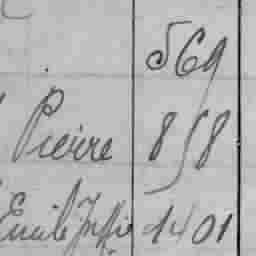 569
Pierre 858
Emile 1401